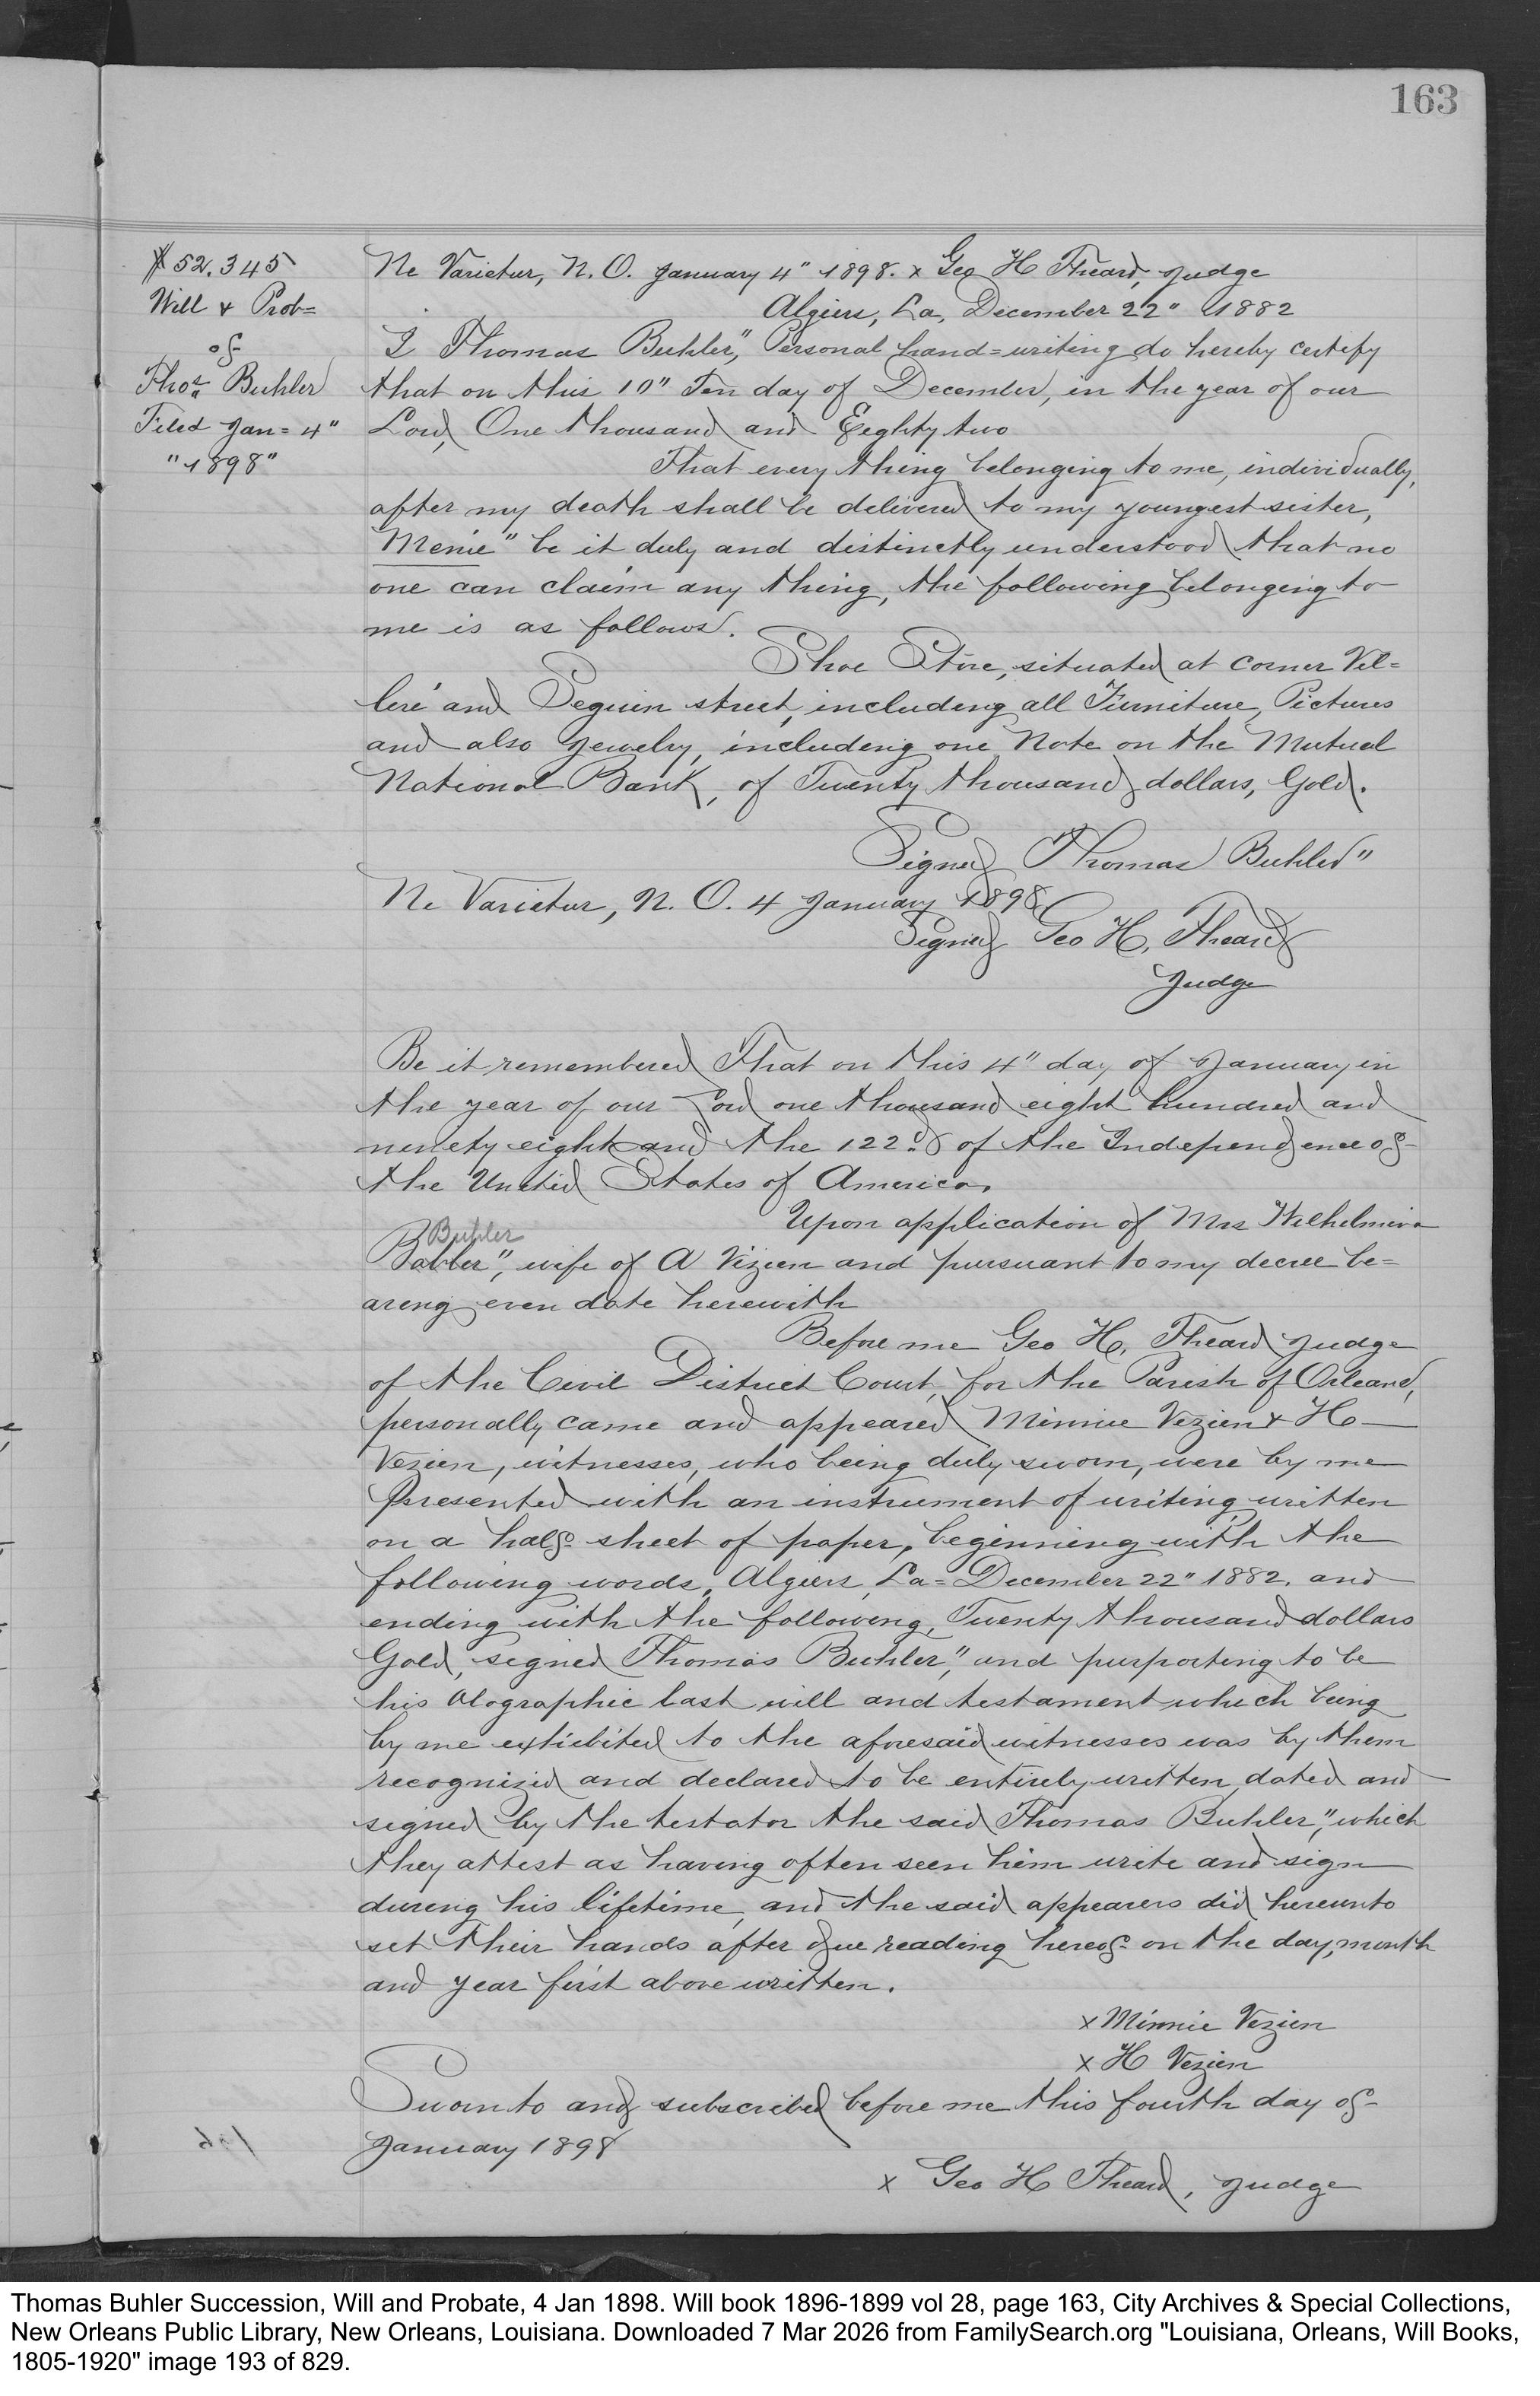 163
# 52.345
Will & Prob=
of
Thos. Buhler
Filed Jan= 4"
"1898"
Ne Varietur, N. O. January 4" 1898. x Geo H Theard, Judge
Algiers, La, December 22" 1882
I Thomas Buhler", Personal hand=writing do hereby certify
that on this 10" Ten day of December, in the year of our
Lord, One thousand and Eighty two
That every thing belonging to me, individually,
after my death shall be delivered to my youngest sister,
Menie" be it duly and distinctly understood that no
one can claim any thing, the following belonging to
me is as follows.
Shoe Store, situated at corner Vil=
leré and Seguin street, including all Furniture, Pictures
and also Jewelry, including one Note on the Mutual
National Bank, of Twenty thousand dollars, Gold.
Signed Thomas Buhler"
Ne Varietur, N. O. 4 January 1898
Signed Geo H. Theard
Judge
Be it remembered That on this 4" day of January in
the year of our Lord one thousand eight hundred and
ninety eight and the 122d of the Independence of
the United States of America,
Upon application of Mrs Wilhelmina
Buhler
Babler", wife of A Vizien and pursuant to my decree be=
aring even date herewith
Before me Geo H. Theard Judge
of the Civil District Court, for the Parish of Orleans,
personally came and appeared Minnie Vezien & H
Vezien, witnesses, who being duly sworn, were by me
presented with an instrument of writing written
on a half sheet of paper, beginning with the
following words, Algiers, La= December 22" 1882. and
ending with the following, Twenty thousand dollars
Gold, signed Thomas Buhler", and purporting to be
his Olographic last will and testament which being
by me exhibited to the aforesaid witnesses was by them
recognized and declared to be entirely written, dated and
signed by the testator the said Thomas Buhler", which
they attest as having often seen him write and sign
during his lifetime, and the said appearers did hereunto
set their hands after due reading hereof on the day, month
and year first above written.
x Minnie Vezien
x H Vezien
Sworn to and subscribed before me this fourth day of
January 1898
x Geo H Theard, Judge
Thomas Buhler Succession, Will and Probate, 4 Jan 1898. Will book 1896-1899 vol 28, page 163, City Archives & Special Collections,
New Orleans Public Library, New Orleans, Louisiana. Downloaded 7 Mar 2026 from FamilySearch.org "Louisiana, Orleans, Will Books,
1805-1920" image 193 of 829.